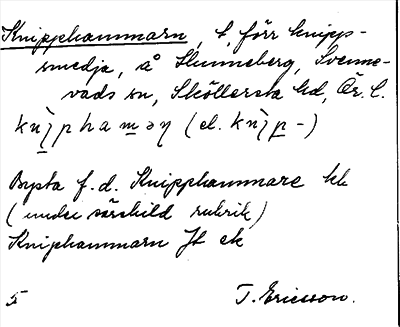 Knipphammarn, t, förr knipps-
smedja, å Skinneberg, Svenne-
vads sn, Sköllersta hd, Ör. l.
kn̠ìp h a m̠ ə ŋ (el. kn̠ìp̠ -)
Bysta f. d. Knipphammare hk
(under särskild rubrik)
Kniphammarn Jt ek
5 T. Ericsson.